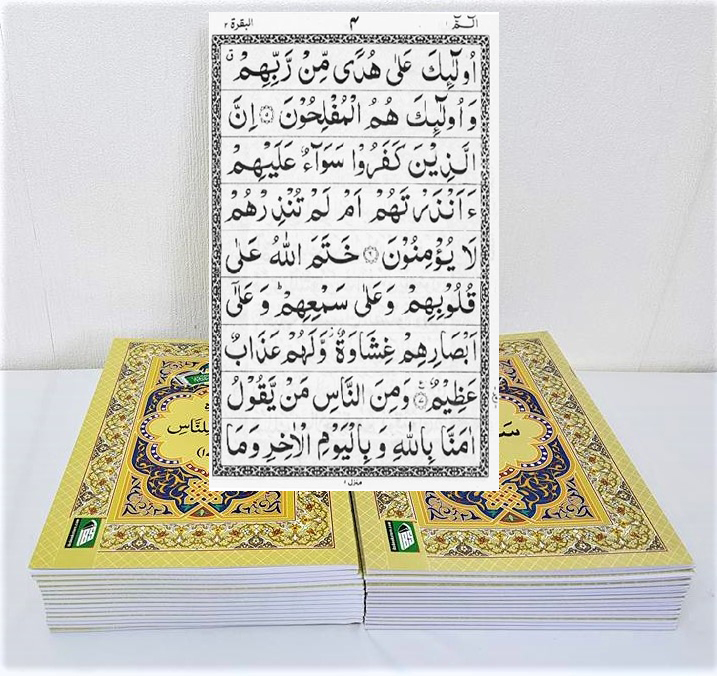 الٓمّٓ ١
٣
البقرة ٢
اُولٰٓئِكَ عَلٰى هُدًى مِّنْ رَّبِّهِمْ ۙ
وَاُولٰٓئِكَ هُمُ الْمُفْلِحُوْنَ ۝ اِنَّ
الَّذِيْنَ كَفَرُوْا سَوَآءٌ عَلَيْهِمْ
ءَاَنْذَرْتَهُمْ اَمْ لَمْ تُنْذِرْهُمْ
لَا يُؤْمِنُوْنَ ۝ خَتَمَ اللّٰهُ عَلٰى
قُلُوْبِهِمْ وَعَلٰى سَمْعِهِمْ ؕ وَعَلٰٓى
اَبْصَارِهِمْ غِشَاوَةٌ ؗ وَّلَهُمْ عَذَابٌ
عَظِيْمٌ ۝ وَمِنَ النَّاسِ مَنْ يَّقُوْلُ
اٰمَنَّا بِاللّٰهِ وَبِالْيَوْمِ الْاٰخِرِ وَمَا
منزل ١
لِلنَّاسِ
IBS
IBS